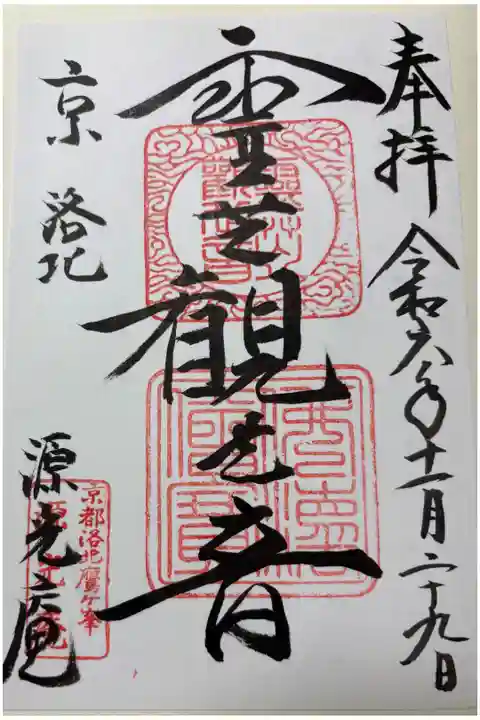 奉拝 令和六年十一月二十九日
霊芝観世音
京 洛北
源光庵
京都洛北鷹ヶ峯
源光庵